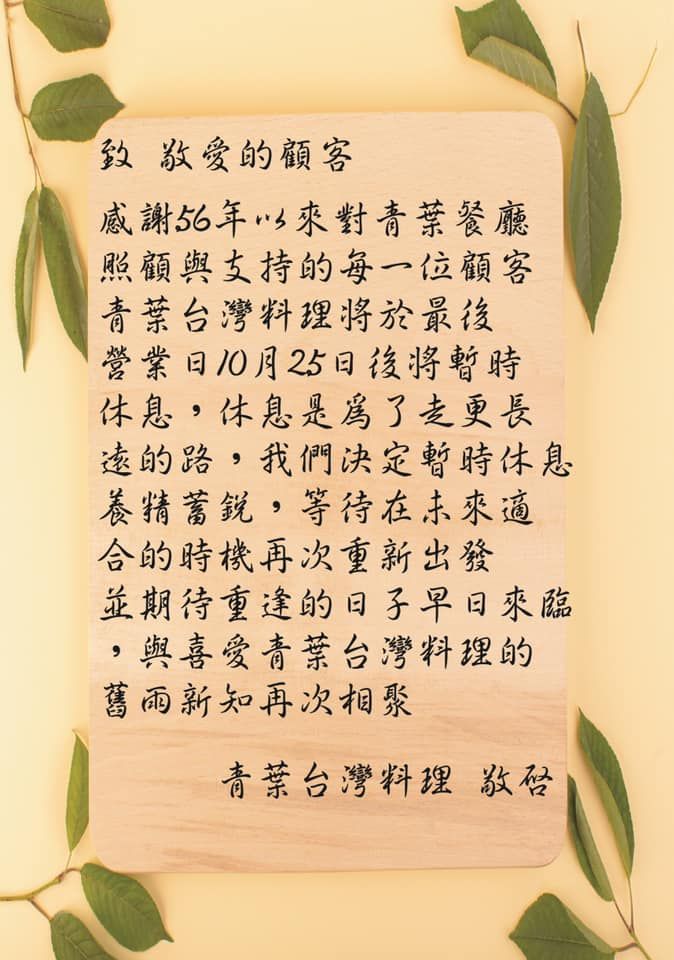 致 敬愛的顧客
感謝56年以來對青葉餐廳
照顧與支持的每一位顧客
青葉台灣料理將於最後
營業日10月25日後將暫時
休息，休息是為了走更長
遠的路，我們決定暫時休息
養精蓄銳，等待在未來適
合的時機再次重新出發
並期待重逢的日子早日來臨
，與喜愛青葉台灣料理的
舊雨新知再次相聚
青葉台灣料理 敬啓